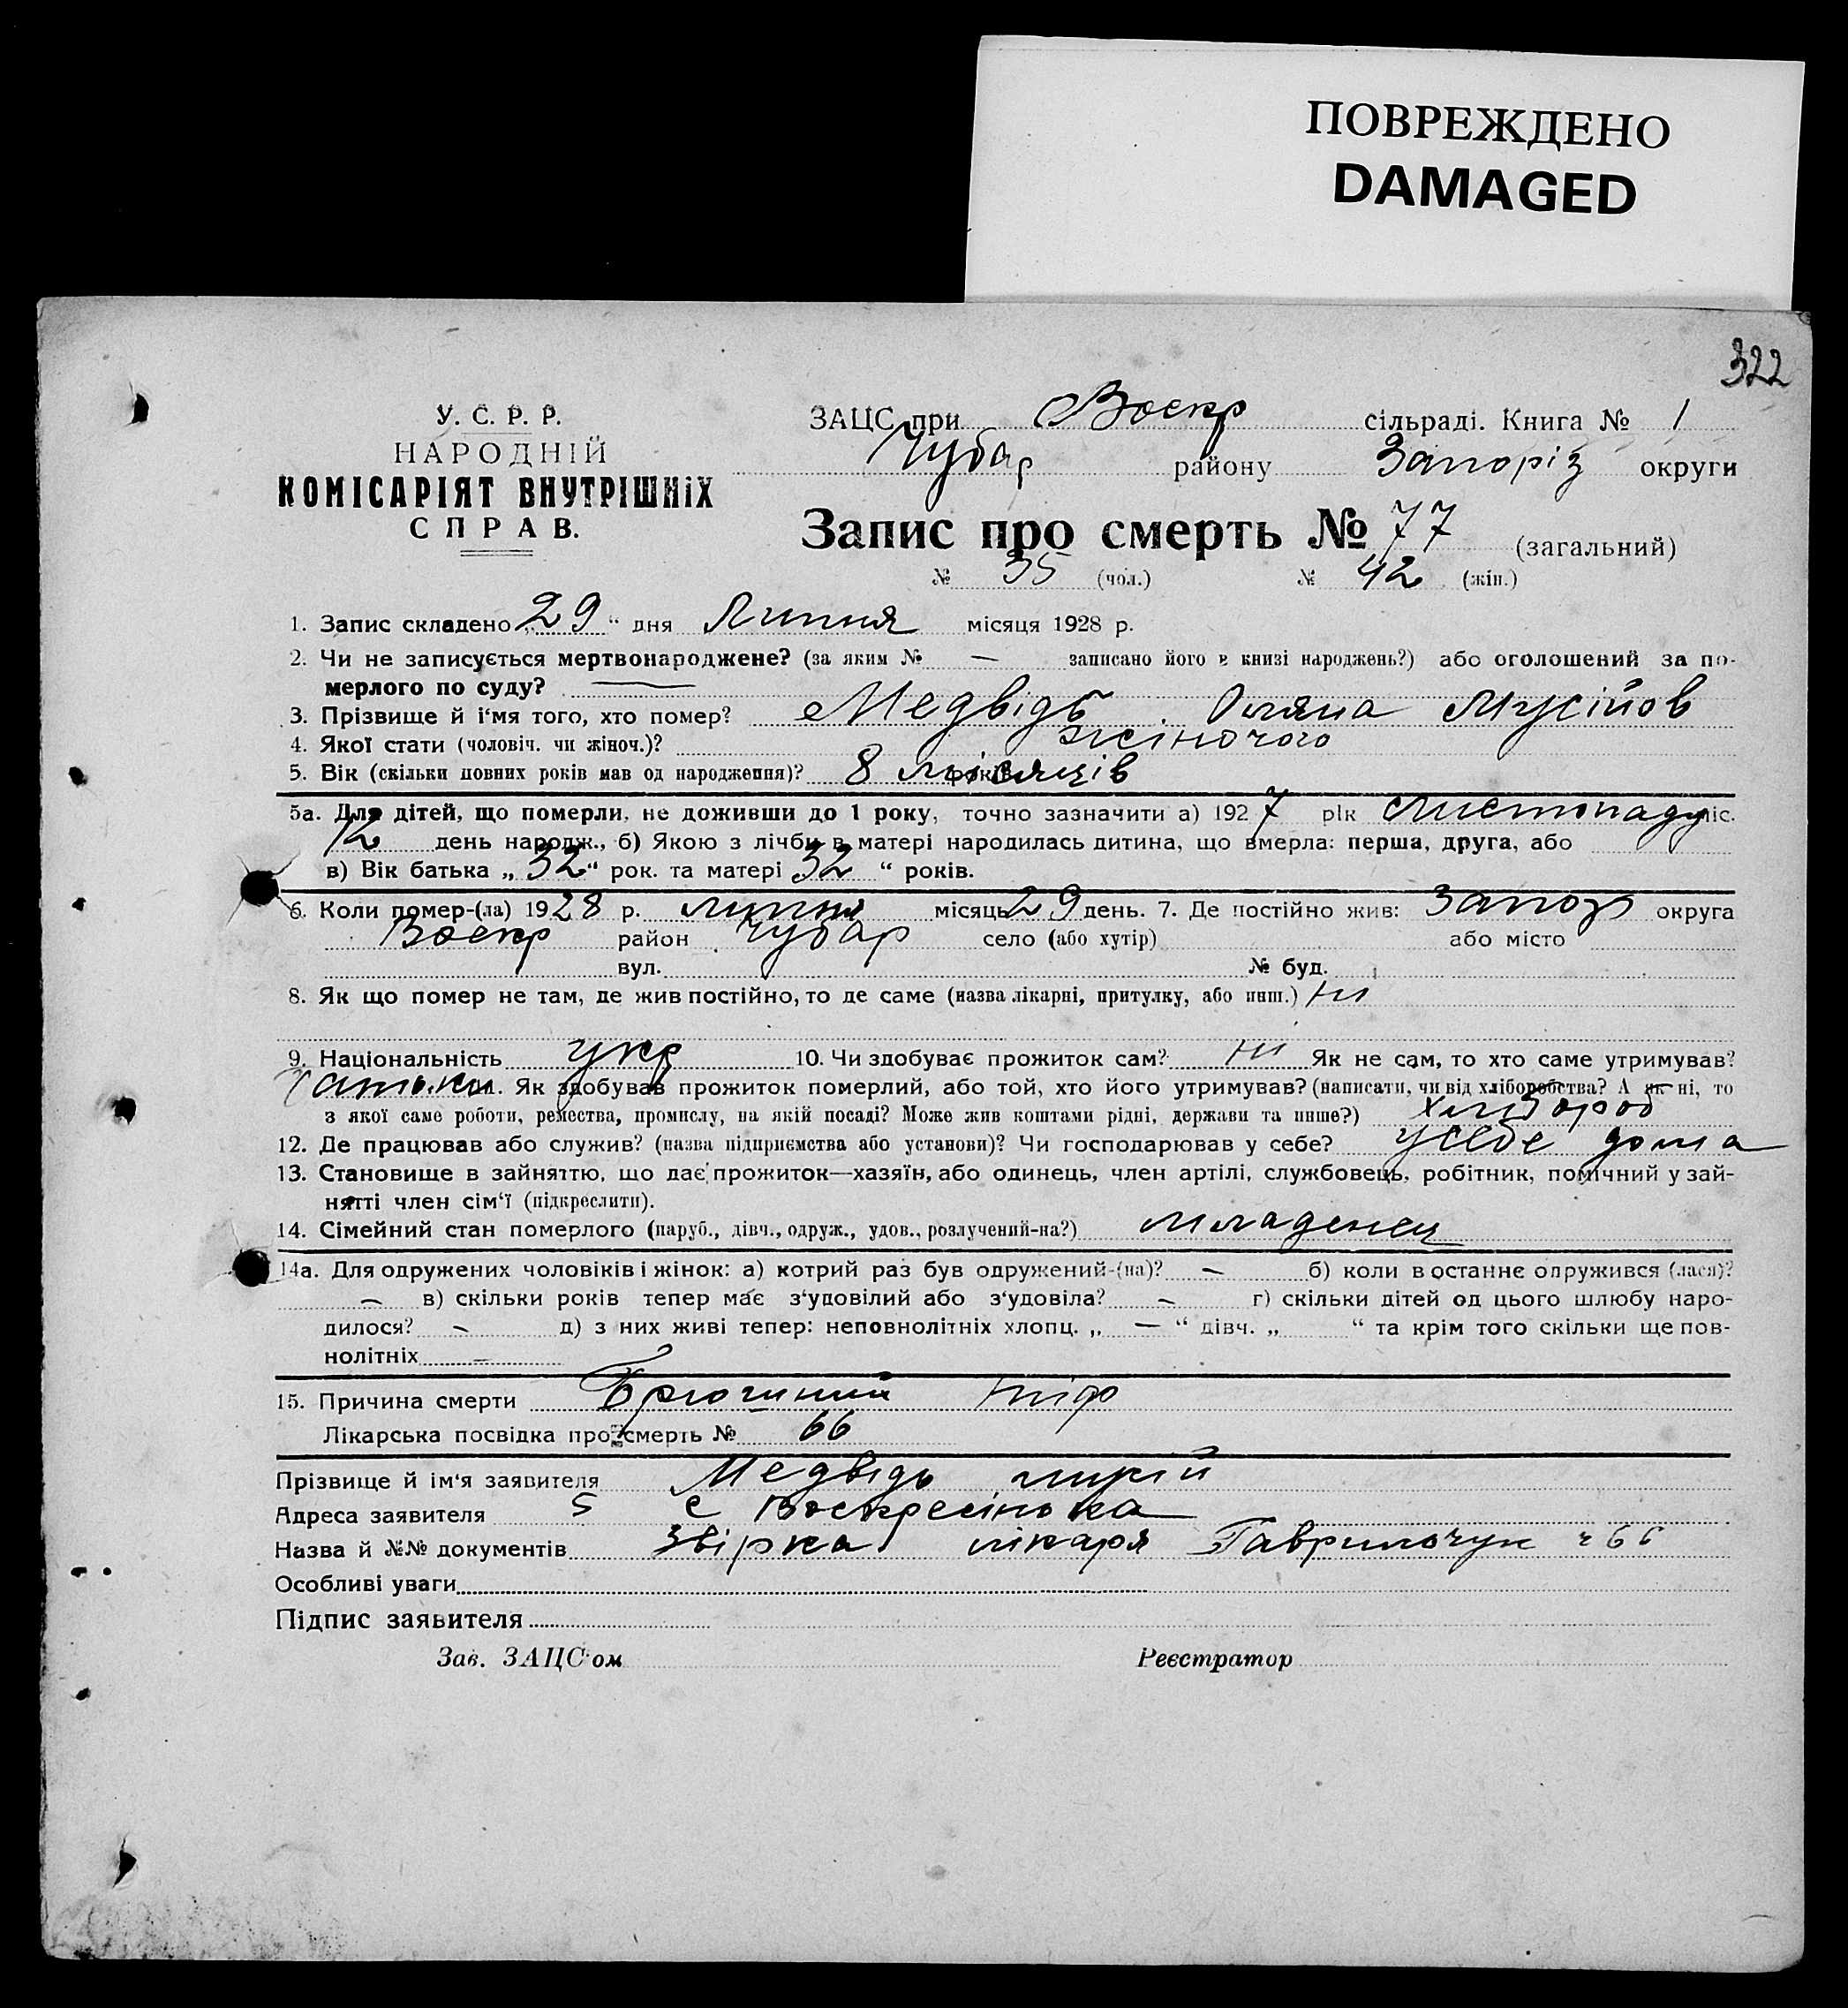 ПОВРЕЖДЕНО
DAMAGED
322
У. С. Р. Р.
НАРОДНІЙ
КОМІСАРІЯТ ВНУТРІШНІХ
СПРАВ.
ЗАЦС при Воскр сільраді. Книга № 1
Чубар району Запоріз округи
Запис про смерть № 77 (загальний)
№ 35 (чол.) № 42 (жін.)
1. Запис складено „29“ дня Липня місяця 1928 р.
2. Чи не записується мертвонароджене? (за яким № — записано його в книзі народжень?) або оголошений за по-
мерлого по суду? —
3. Прізвище й і‘мя того, хто помер? Медвідь Мусійов
4. Якої стати (чоловіч. чи жіноч.)? жіночого
5. Вік (скільки повних років мав од народження)? 8 місяців
5а. Для дітей, що померли, не доживши до 1 року, точно зазначити а) 1927 рік Листопаду міс.
12 день народж., б) Якою з лічби в матері народилась дитина, що вмерла: перша, друга, або
в) Вік батька „32“ рок. та матері 32 “ років.
6. Коли помер-(ла) 1928 р. липня місяць 29 день. 7. Де постійно жив: Запоз округа
Воскр район Чубар село (або хутір) або місто
вул. № буд.
8. Як що помер не там, де жив постійно, то де саме (назва лікарні, притулку, або инш.) ні
9. Національність укр 10. Чи здобуває прожиток сам? ні Як не сам, то хто саме утримував?
батьки 11. Як здобував прожиток померлий, або той, хто його утримував? (написати, чи від хліборобства? А як ні, то
з якої саме роботи, ремества, промислу, на якій посаді? Може жив коштами рідні, держави та инше?) хлібороб
12. Де працював або служив? (назва підприємства або установи)? Чи господарював у себе? усебе дома
13. Становище в зайняттю, що дає прожиток—хазяїн, або одинець, член артілі, службовець, робітник, помічний у зай-
нятті член сім‘ї (підкреслити).
14. Сімейний стан померлого (паруб., дівч., одруж., удов., розлучений-на?) младенец
14а. Для одружених чоловіків і жінок: а) котрий раз був одружений-(на)? — б) коли в останнє одружився (лася)?
— в) скільки років тепер має з‘удовілий або з‘удовіла? — г) скільки дітей од цього шлюбу наро-
дилося? — д) з них живі тепер: неповнолітніх хлопц. „ — “ дівч. „ “ та крім того скільки ще пов-
нолітніх —
15. Причина смерти Брюшний тіф
Лікарська посвідка про смерть № 66
Прізвище й ім‘я заявителя Медвідь
Адреса заявителя с Воскресінька
Назва й №№ документів лікаря Гаврильчук 66
Особливі уваги
Підпис заявителя
Зав. ЗАЦС‘ом Реєстратор